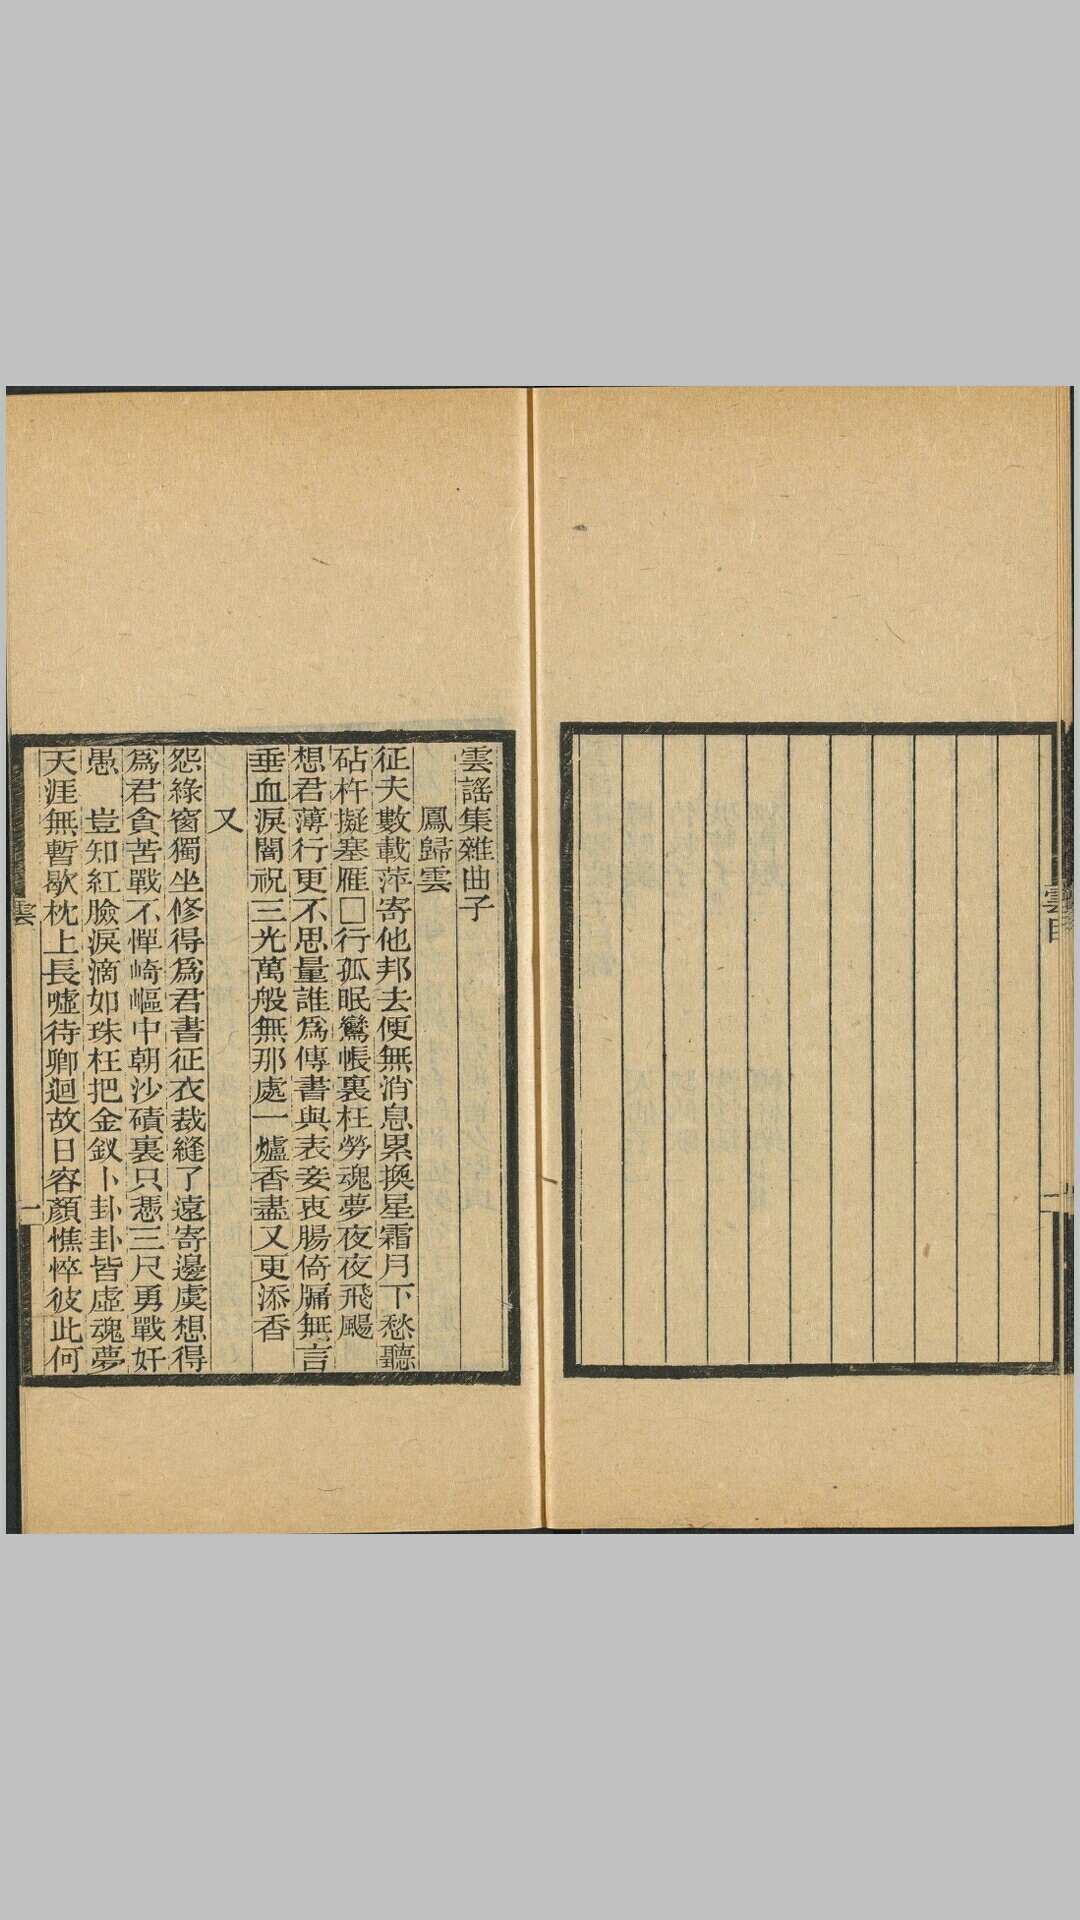 雲目
一
雲謠集雜曲子
鳳歸雲
征夫數載萍寄他邦去便無消息累換星霜月下愁聽
砧杵擬塞雁□行孤眠鸞帳裏枉勞魂夢夜夜飛颺
想君薄行更不思量誰爲傳書與表妾衷腸倚牖無言
垂血淚闇祝三光萬般無那處一爐香盡又更添香
又
怨綠窗獨坐修得爲君書征衣裁縫了遠寄邊虞想得
爲君貪苦戰不憚崎嶇中朝沙磧裏只憑三尺勇戰奸
愚　豈知紅臉淚滴如珠枉把金釵卜卦卦皆虛魂夢
天涯無暫歇枕上長噓待卿迴故日容顏憔悴彼此何
雲
一